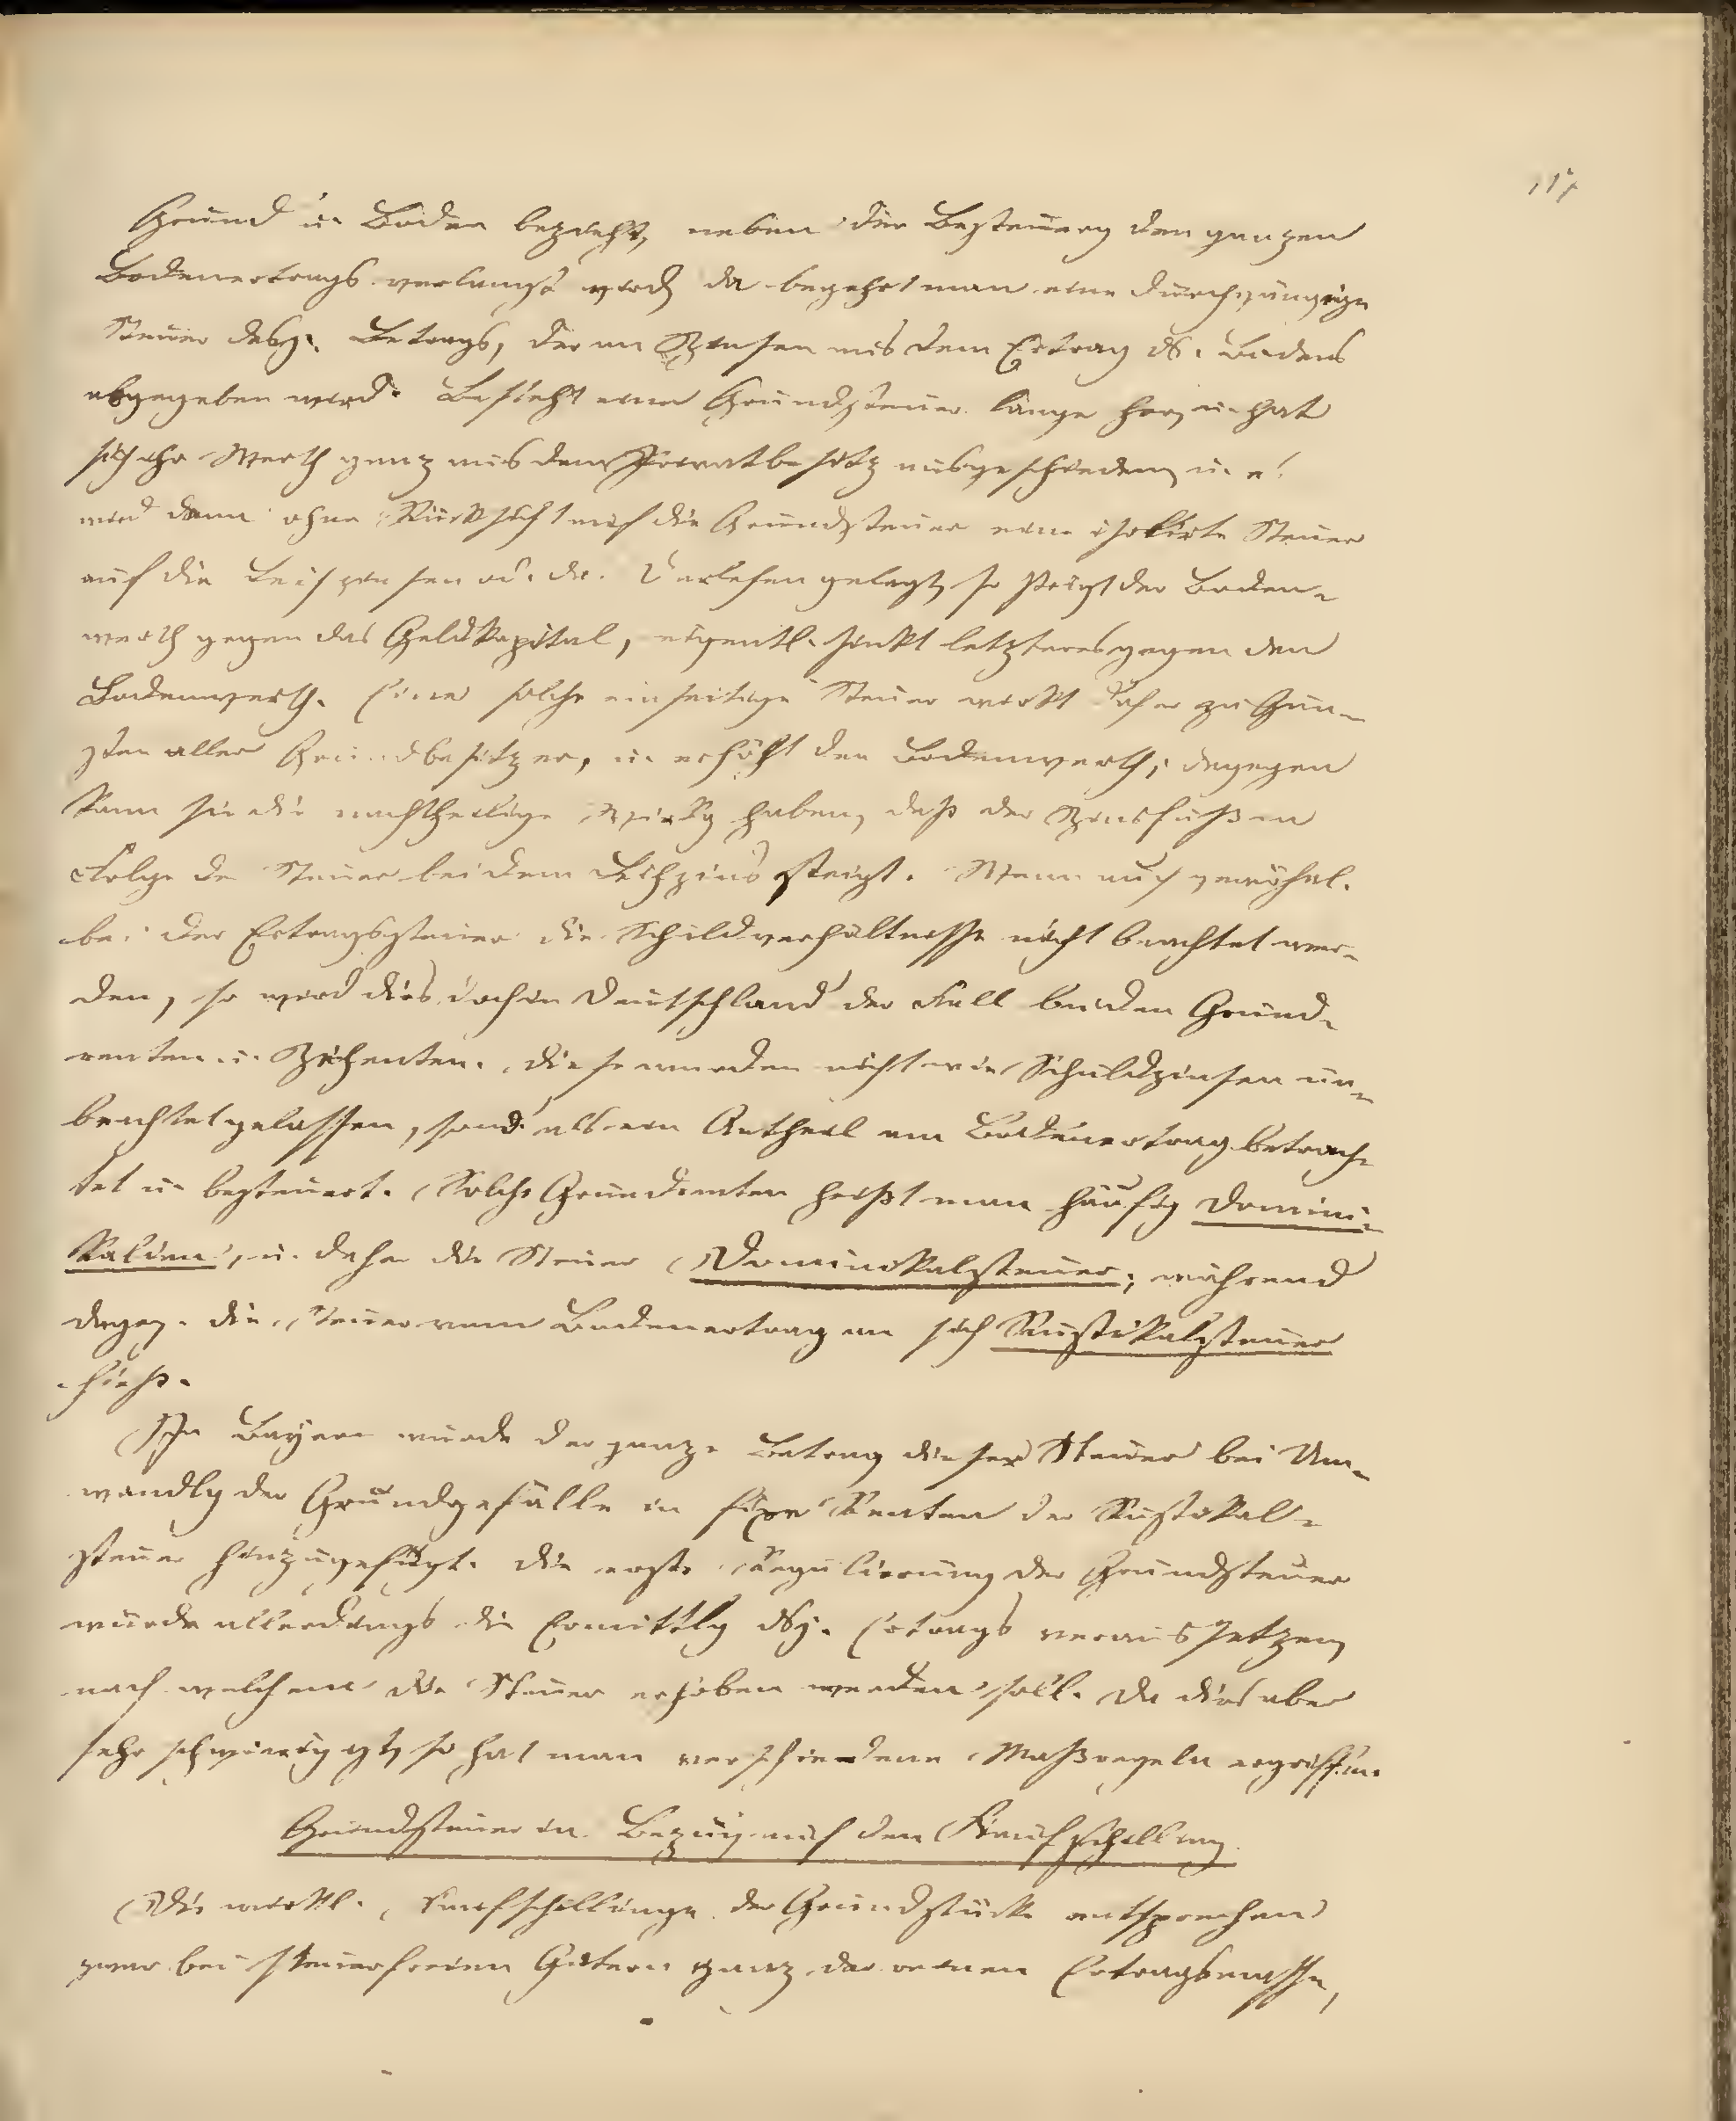 117
Grund u. Boden bezieht, neben der Besteuerg des ganzen
Bodenertrags verlangt wird, da begehrt man eine durchgängige
Steuer desj. Betrags, der an Zinsen aus dem Ertrag ds. Bodens
abgegeben wird. Besteht eine Grundsteuer lange her, u. hat
sich ihr Werth ganz aus dem Privatbesitz ausgeschieden, u. es
wird dann ohne Rücksicht auf die Grundsteuer eine isolirte Steuer
auf die Leihzinsen od. dr. Darlehen gelegt, so steigt der Boden-
werth gegen das Geldkapital, eigentl. sinkt letzteres gegen den
Bodenwerth. Eine solche einseitige Steuer wirkt daher zu Gun-
sten aller Grundbesitzer, u. erhöht den Bodenwerth; dagegen
kann sie die nachtheilige Wirkg haben, daß der Zinsfuß in
Folge der Steuer bei dem Leihzins steigt. Wenn auch gewöhnl.
bei der Ertragssteuer die Schuldverhältnisse nicht beachtet wer-
den, so wird dies doch in Deutschland der Fall bei den Grund-
renten u. Zehenten. Diese wurden nicht wie Schuldzinsen un-
beachtet gelassen, sond. als ein Antheil am Bodenertrag betrach-
tet u. besteuert. Solche Grundrenten heißt man häufig Domini-
kalien, u. daher die Steuer Dominikalsteuer; während
dageg. die Steuer vom Bodenertrag an sich Rustikalsteuer
hieß.
In Bayern wurde der ganze Betrag dieser Steuer bei Um-
wandlg der Grundgefälle in fixe Renten der Rustikal-
steuer hinzugefügt. Die erste Regulierung der Grundsteuer
würde allerdings die Ermittlg dsj. Ertrags voraussetzen,
nach welchem die Steuer erhoben werden soll. Da dies aber
sehr schwierig ist, so hat man verschiedene Maßregeln ergriffen.
Grundsteuer in Bezug auf den Kaufschilling.
Die wirkl. Kaufschillinge der Grundstücke entsprechen
zwar bei steuerfreien Gütern ganz der reinen Ertragsmasse,